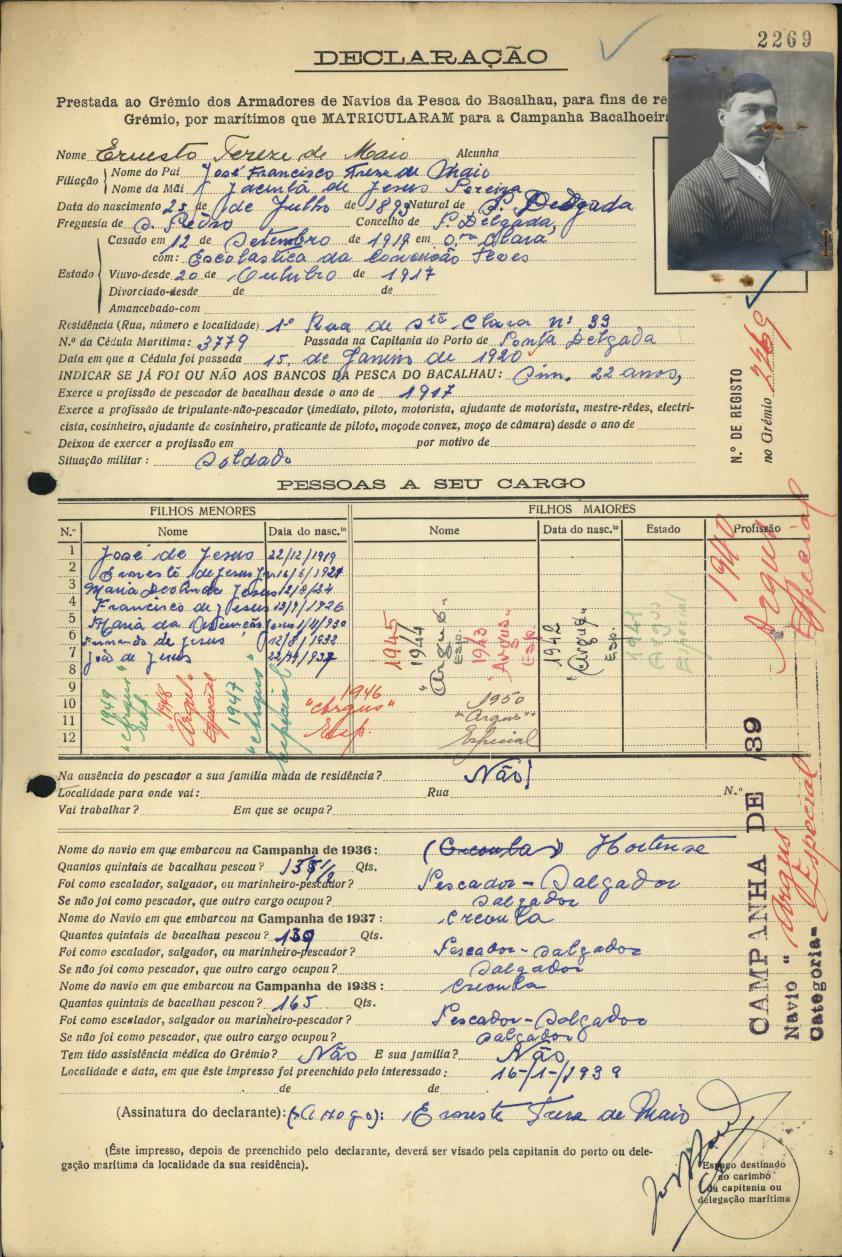 2269
DECLARAÇÃO
Prestada ao Grémio dos Armadores de Navios da Pesca do Bacalhau, para fins de re
Grémio, por marítimos que MATRICULARAM para a Campanha Bacalhoeira
Nome Ernesto Treze de Maio Alcunha
Filiação Nome do Pai José Francisco Treze de Maio
Nome da Mãi Jacinta de Jesus Pereira
Data do nascimento 25 de Julho de 1895 Natural de P. Delgada
Freguesia de S. Pedro Concelho de P. Delgada,
Estado Casado em 12 de Setembro de 1919 em S.ta Clara
com: Escolastica da Conceição
Viuvo-desde 20 de Outubro de 1917
Divorciado-desde de de
Amancebado-com
Residência (Rua, número e localidade) 1ª Rua de Stª Clara nº 39
N.º da Cédula Marítima: 3779 Passada na Capitania do Porto de Ponta Delgada
Data em que a Cédula foi passada 15 de Janeiro de 1920
INDICAR SE JÁ FOI OU NÃO AOS BANCOS DA PESCA DO BACALHAU: Sim. 22 anos,
Exerce a profissão de pescador de bacalhau desde o ano de 1917
Exerce a profissão de tripulante-não-pescador (imediato, piloto, motorista, ajudante de motorista, mestre-rêdes, electri-
cista, cosinheiro, ajudante de cosinheiro, praticante de piloto, moço de convez, moço de câmara) desde o ano de
Deixou de exercer a profissão em por motivo de
Situação militar: Soldado
N.º DE REGISTO
no Grémio 2269
PESSOAS A SEU CARGO
FILHOS MENORES FILHOS MAIORES
N.º Nome Data do nasc.to Nome Data do nasc.to Estado Profissão
1 José de Jesus 22/12/1919
2 Ernesto de Jesus
3 Maria Deolinda Jesus 12/8/24
4 Francisco de Jesus
5 Maria da Jesus
6 Fernando de Jesus 12/8/1932
7 João de Jesus
8
9
10
11
12
1949 "Argus" Esp.
1948 "Argus" Especial
1947 "Argus" Especial
1946 "Argus" Esp.
1945
1944 "Argus" Esp.
1943 "Argus" Esp.
1942 "Argus" Esp.
1941 Argus Especial
1950 "Argus" Especial
1940 Argus Especial
Na ausência do pescador a sua família muda de residência? Não
Localidade para onde vai: Rua N.º
Vai trabalhar? Em que se ocupa?
Nome do navio em que embarcou na Campanha de 1936: (Creoula) Hortense
Quantos quintais de bacalhau pescou? Qts.
Foi como escalador, salgador, ou marinheiro-pescador? Pescador-Salgador
Se não foi como pescador, que outro cargo ocupou? Salgador
Nome do Navio em que embarcou na Campanha de 1937: Creoula
Quantos quintais de bacalhau pescou? 130 Qts.
Foi como escalador, salgador ou marinheiro-pescador? Pescador-Salgador
Se não foi como pescador, que outro cargo ocupou? Salgador
Nome do navio em que embarcou na Campanha de 1938: Creoula
Quantos quintais de bacalhau pescou? 165 Qts.
Foi como escalador, salgador ou marinheiro-pescador? Pescador-Salgador
Se não foi como pescador, que outro cargo ocupou? Salgador
Tem tido assistência médica do Grémio? Não E sua família? Não
Localidade e data, em que êste impresso foi preenchido pelo interessado: 16-/1-/1939
de de
(Assinatura do declarante): (A rogo): Ernesto Treze de Maio
(Êste impresso, depois de preenchido pelo declarante, deverá ser visado pela capitania do porto ou dele-
gação marítima da localidade da sua residência).
Espaço destinado
ao carimbo
da capitania ou
delegação marítima
CAMPANHA DE /39
Navio "Argus
Categoria- Especial